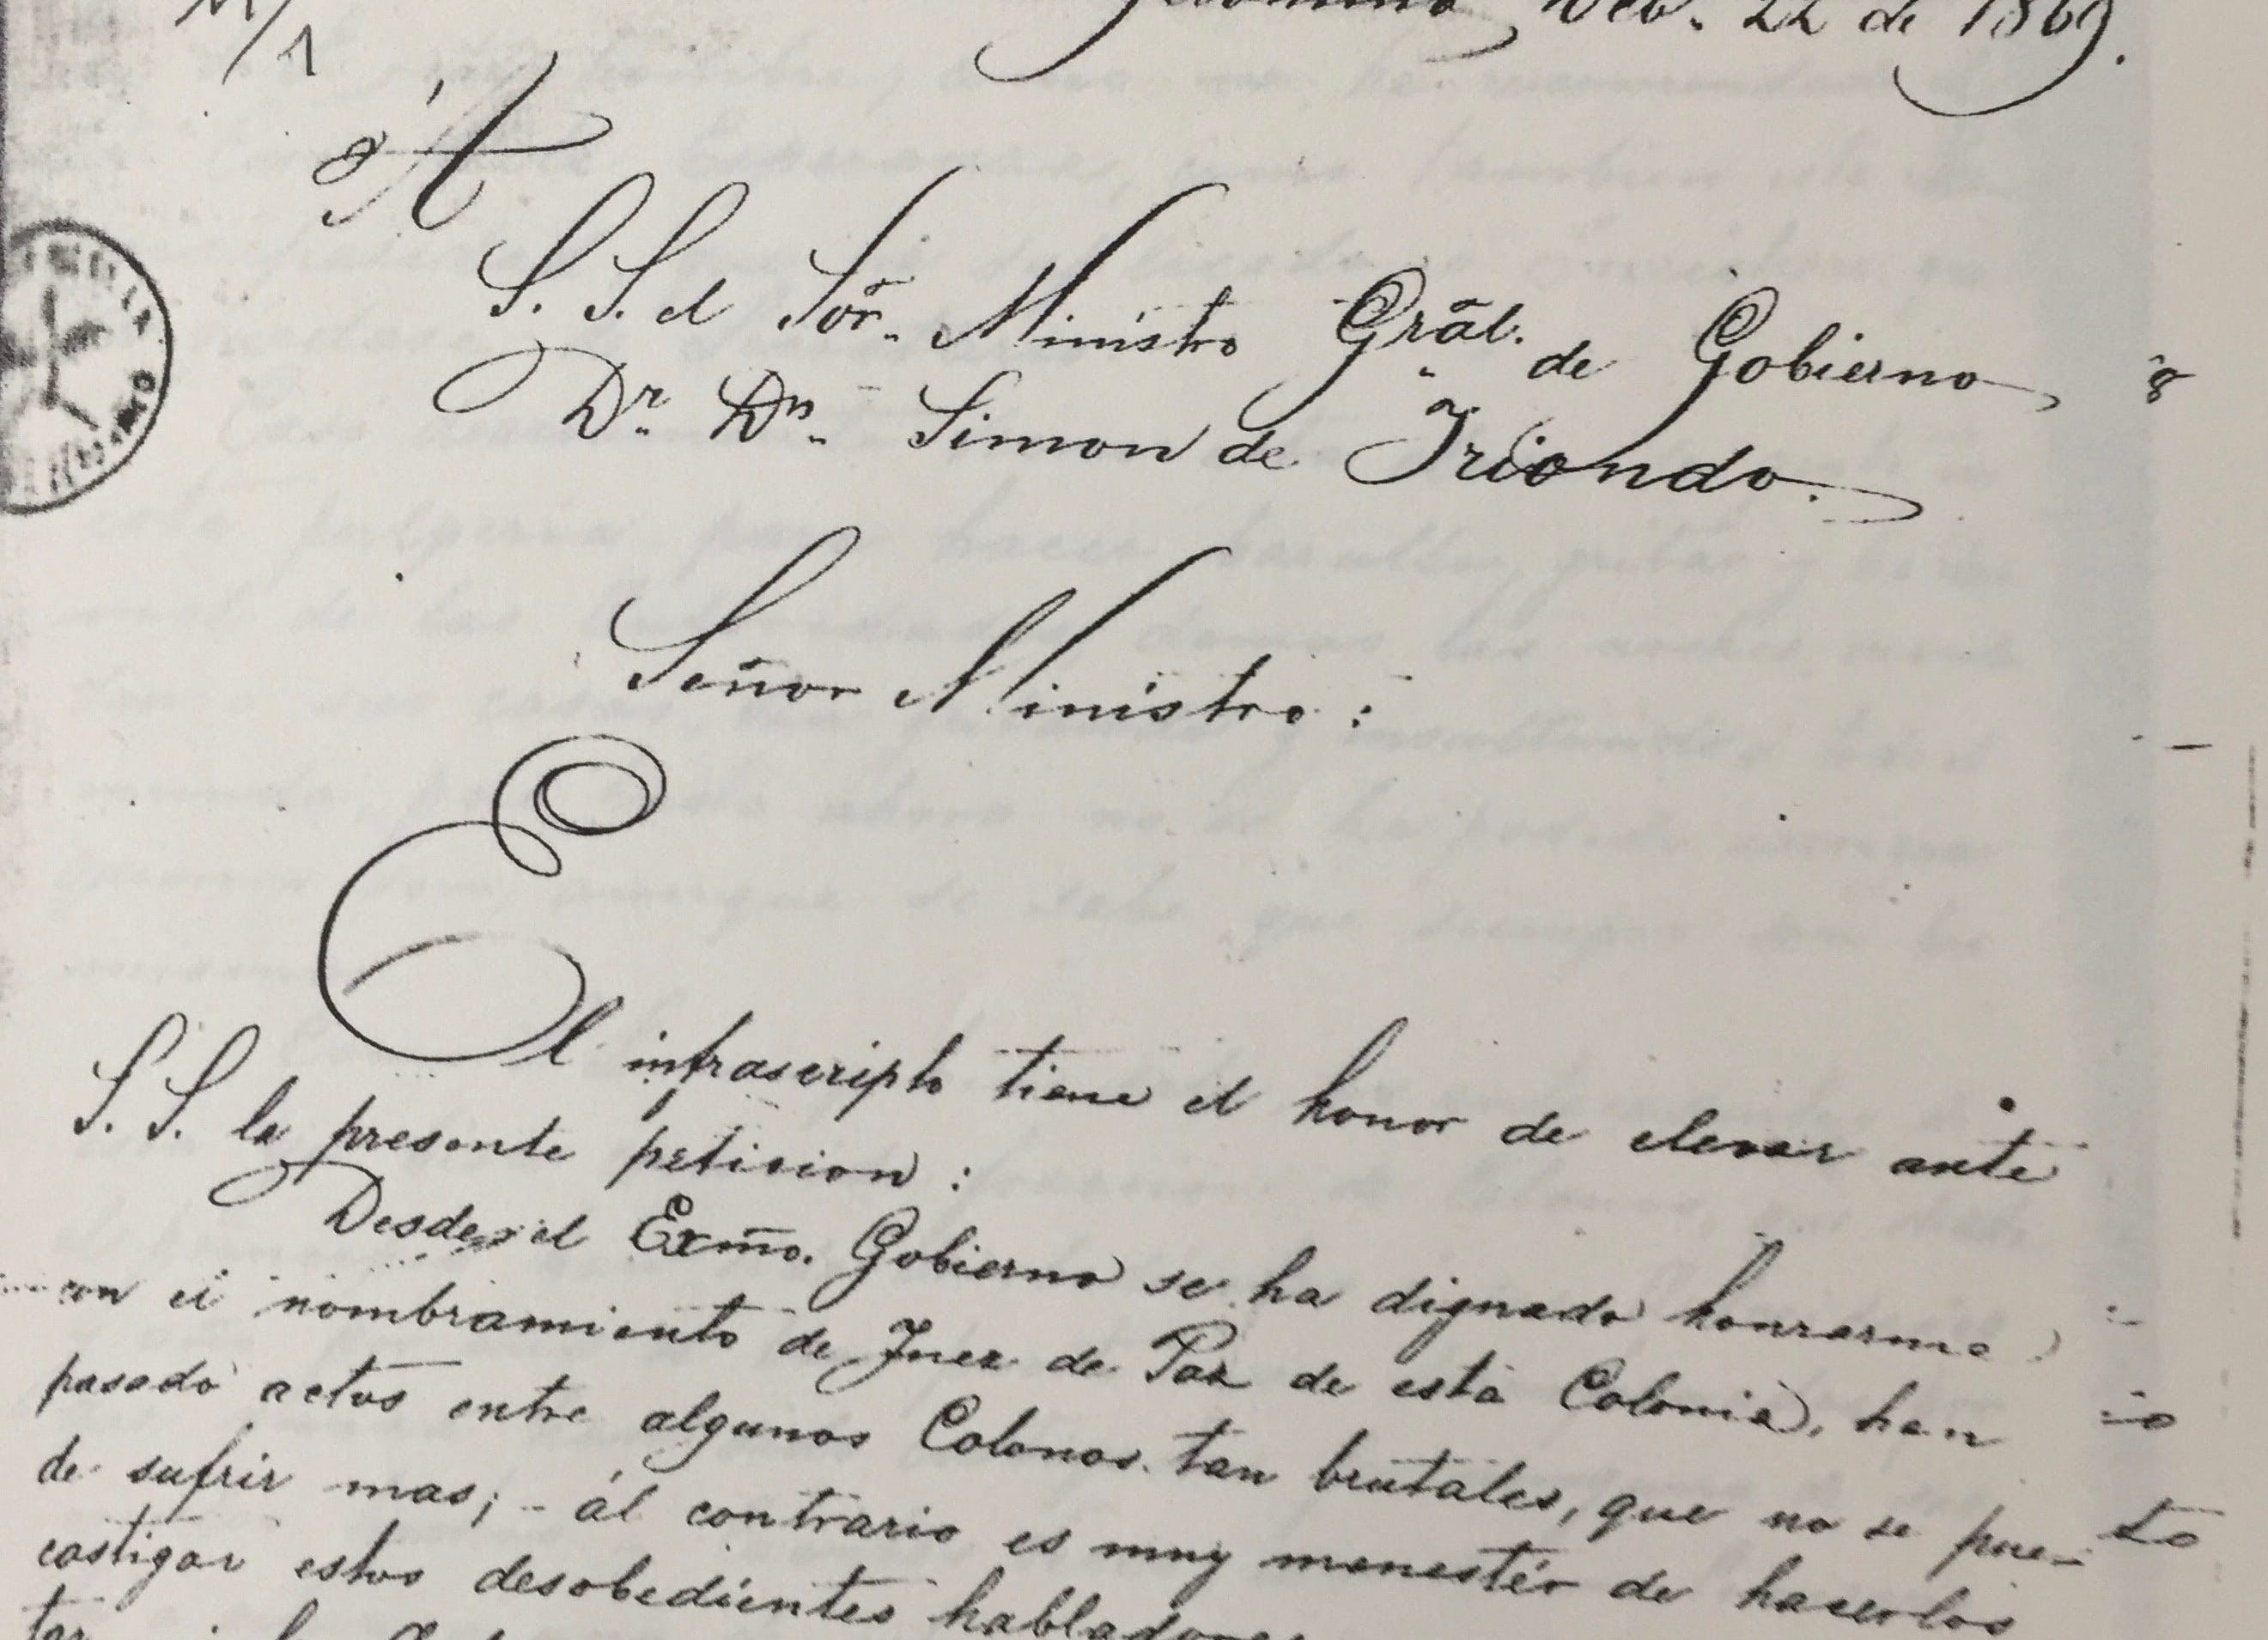 11/1
Geronimo, Feb. 22 de 1869.
Á
S. S. el Sōr. Ministro Grāl. de Gobierno
Dr. Dn. Simon de Iriondo.
Señor Ministro:
El infrascripto tiene el honor de elevar ante
S. S. la presente peticion:
Desde el Exm̄o. Gobierno se ha dignado honrarme
con el nombramiento de Juez de Paz de esta Colonia, han
pasado actos entre algunos Colonos tan brutales, que no se pue-
de sufrir mas; - ál contrario es muy menestér de hacerlos
castigar estos desobedientes habladores